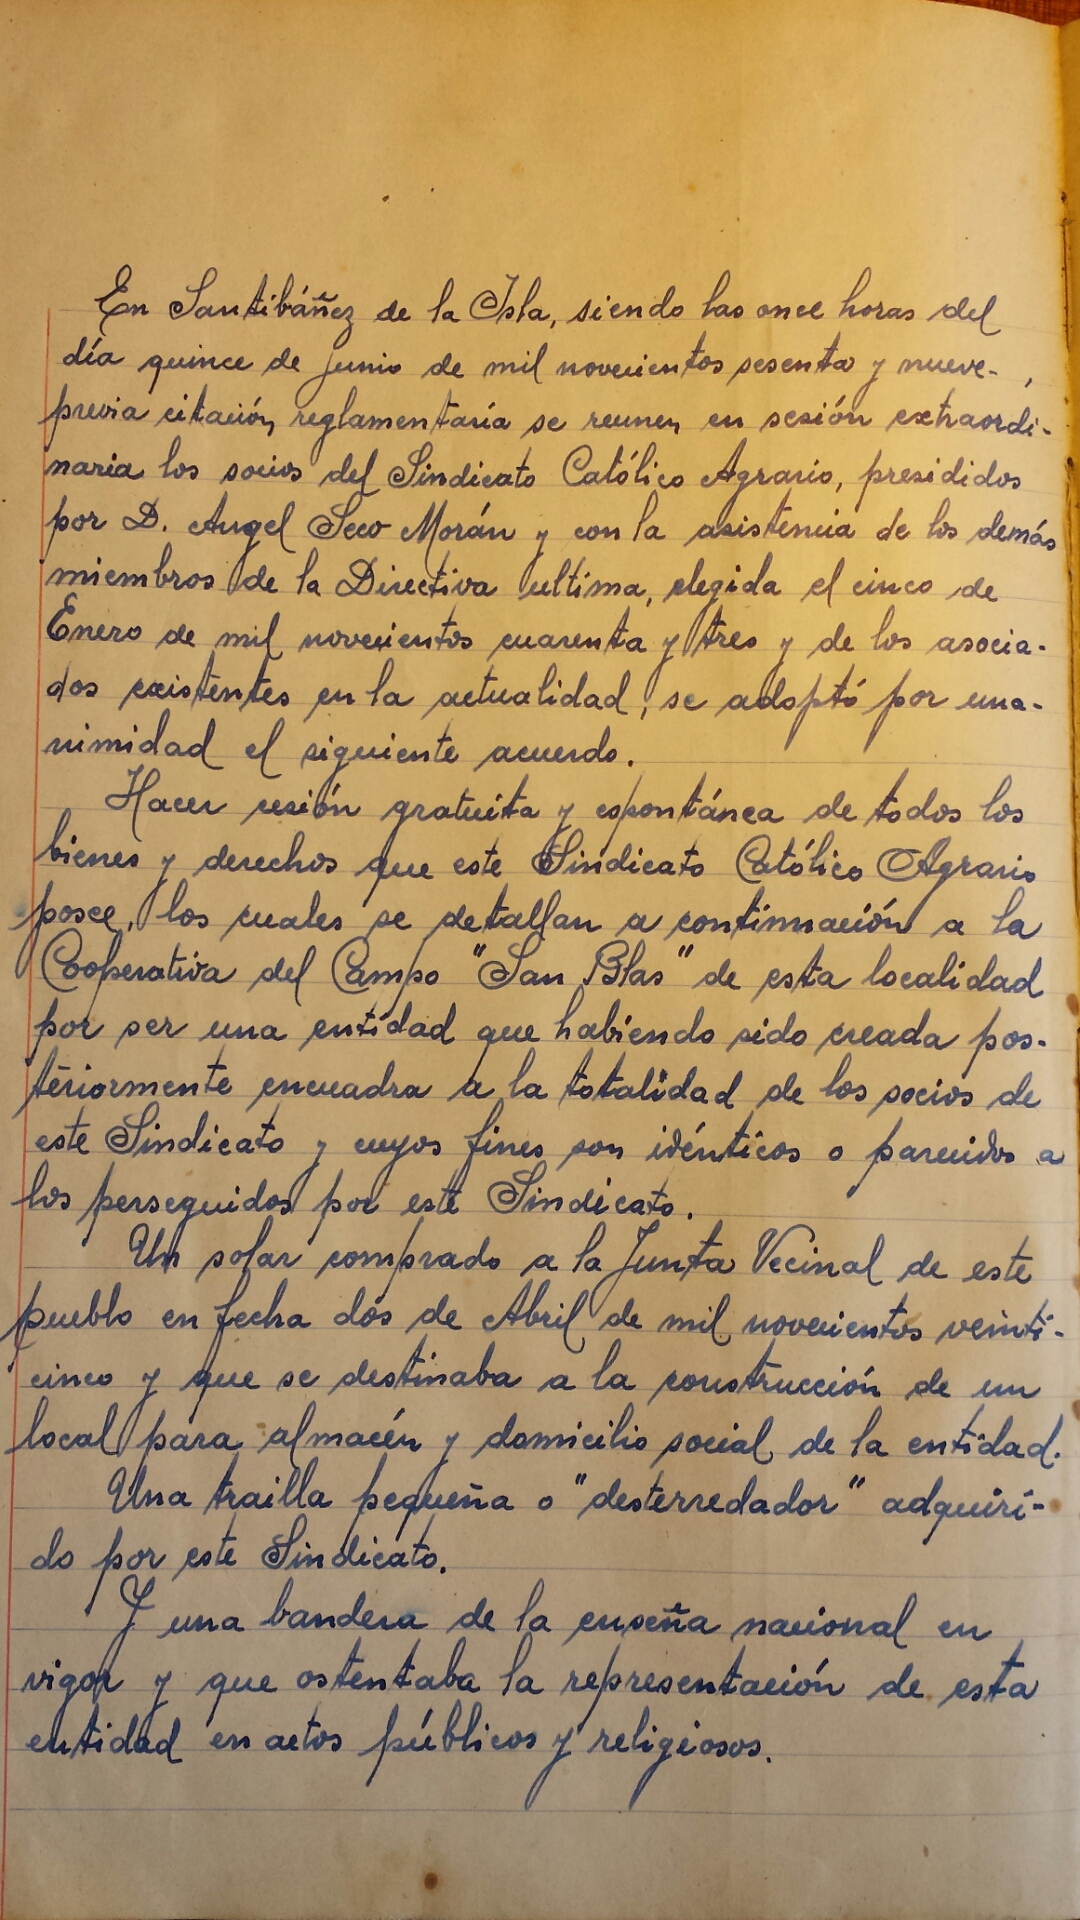 En Santibáñez de la Isla, siendo las once horas del
día quince de junio de mil novecientos sesenta y nueve-,
previa citación reglamentaria se reunen en sesión extraordi-
naria los socios del Sindicato Católico Agrario, presididos
por D. Angel Seco Morán y con la asistencia de los demás
miembros de la Directiva última, elegida el cinco de
Enero de mil novecientos cuarenta y tres y de los asocia-
dos existentes en la actualidad, se adoptó por una-
nimidad el siguiente acuerdo.
Hacer cesión gratuita y espontánea de todos los
bienes y derechos que este Sindicato Católico Agrario
posee, los cuales se detallan a continuación a la
Cooperativa del Campo "San Blas" de esta localidad
por ser una entidad que habiendo sido creada pos-
teriormente encuadra a la totalidad de los socios de
este Sindicato y cuyos fines son idénticos o parecidos a
los perseguidos por este Sindicato.
Un solar comprado a la Junta Vecinal de este
pueblo en fecha dos de Abril de mil novecientos veinti-
cinco y que se destinaba a la construcción de un
local para almacén y domicilio social de la entidad.
Una trailla pequeña o "desterredador" adquiri-
do por este Sindicato.
Y una bandera de la enseña nacional en
vigor y que ostentaba la representación de esta
entidad en actos públicos y religiosos.